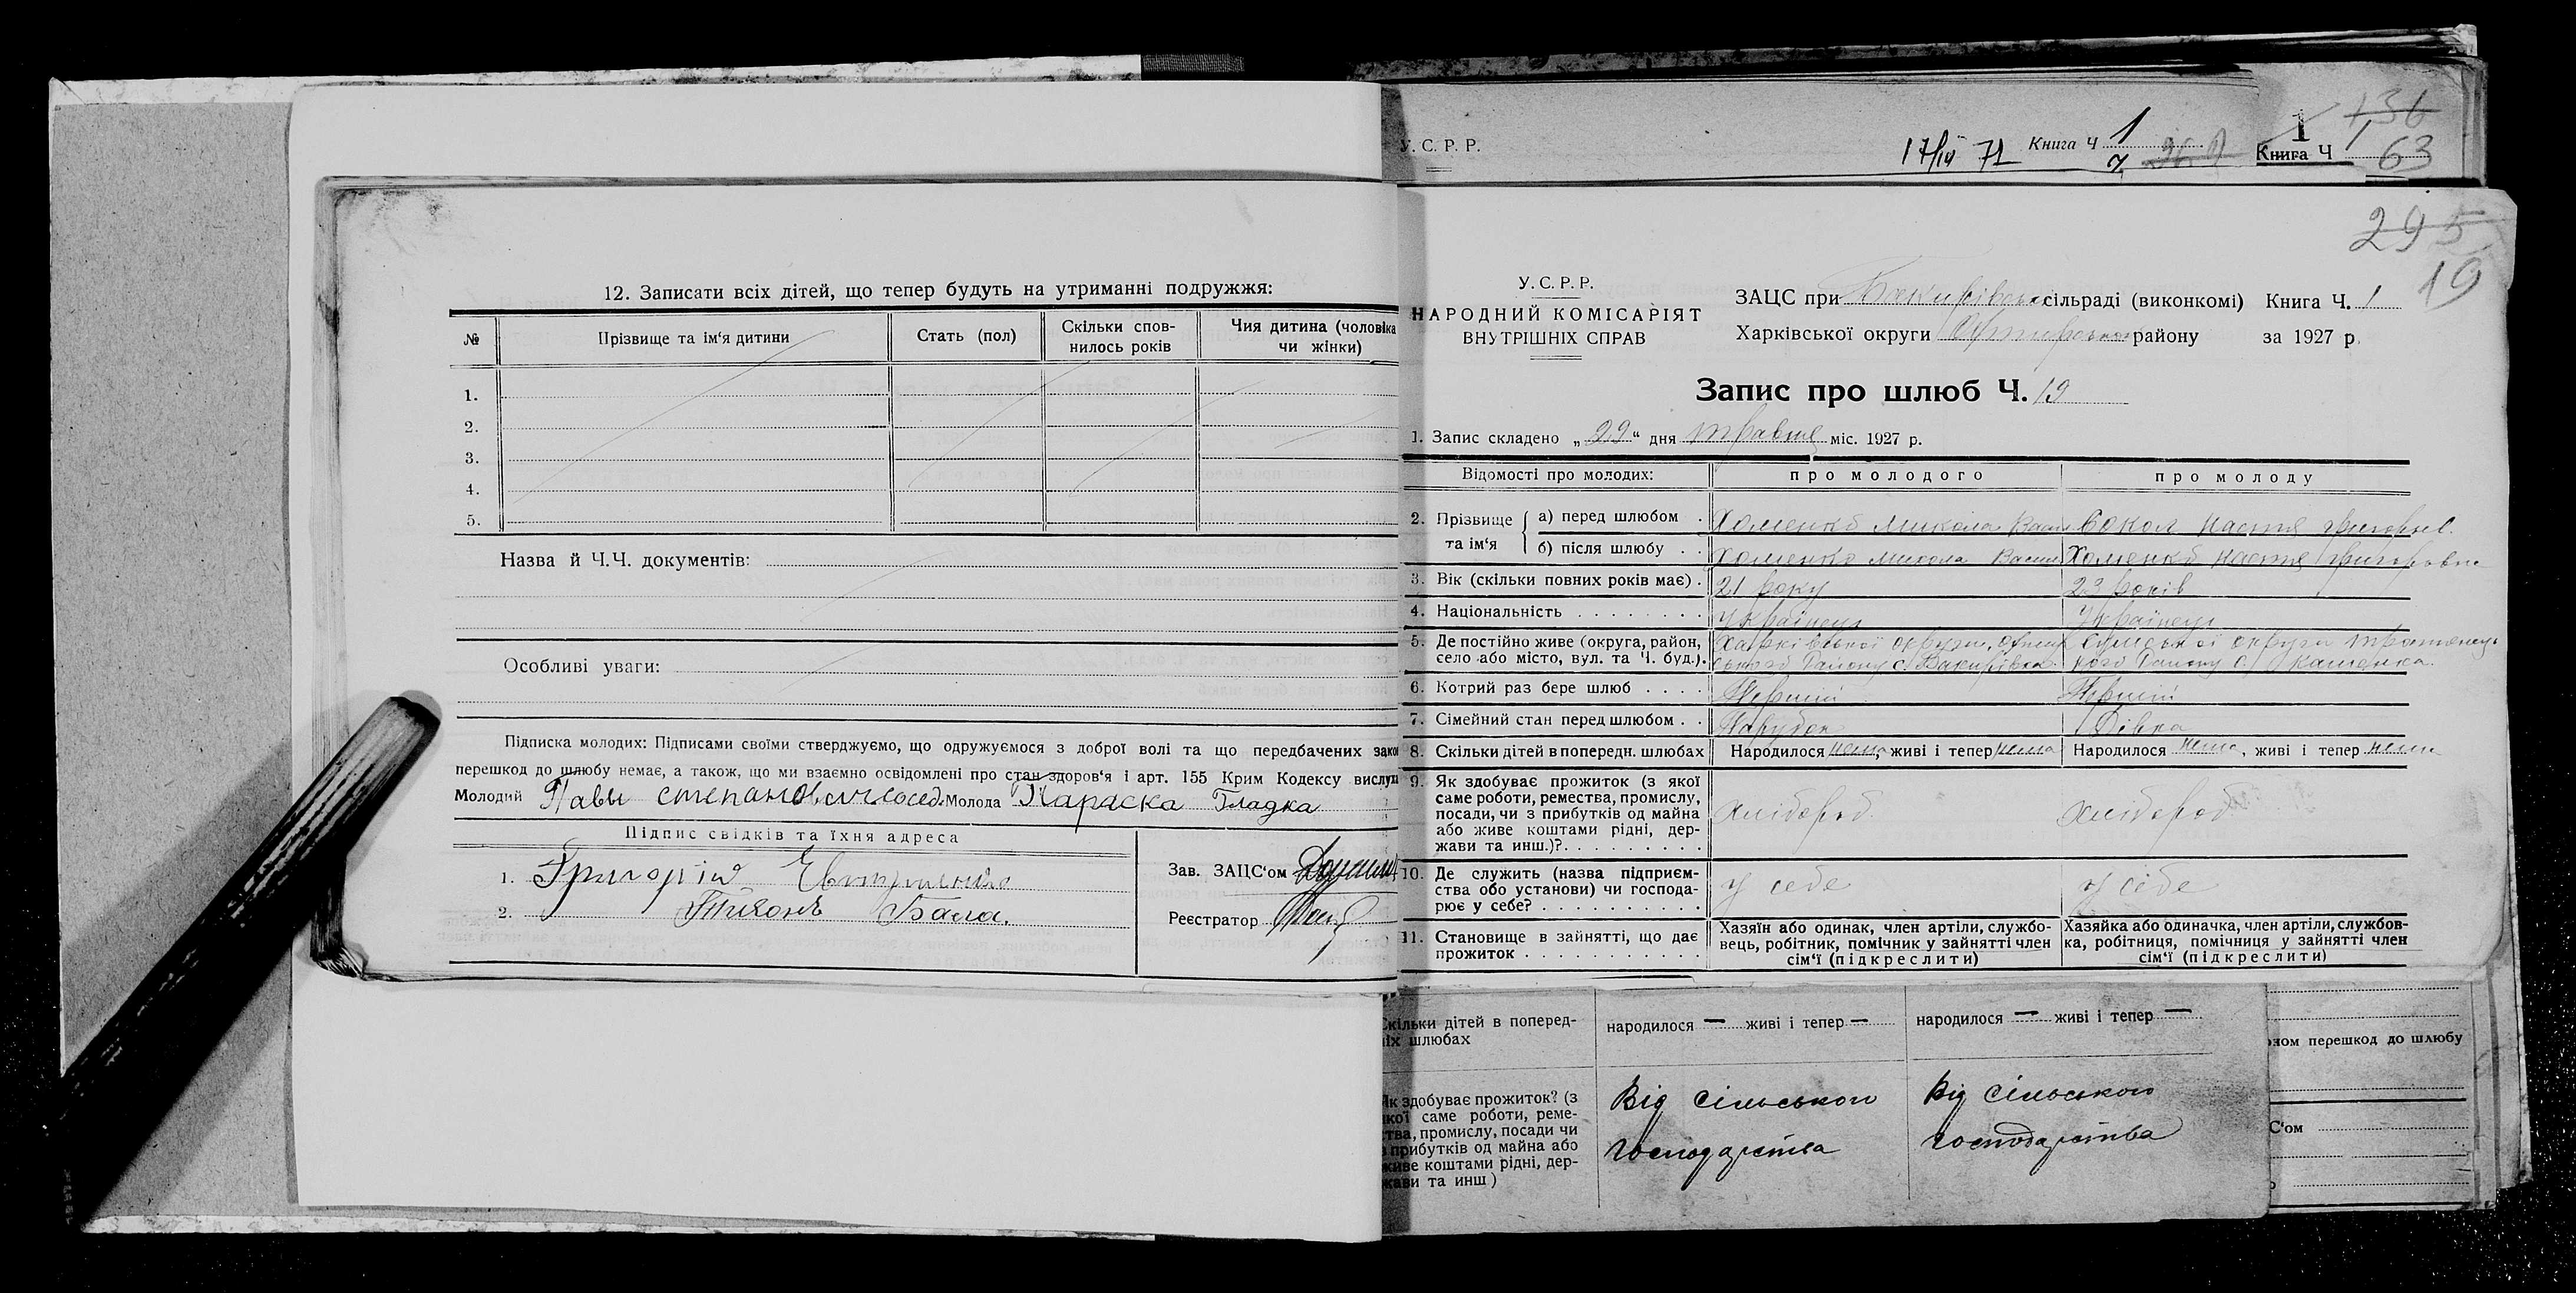 12. Записати всіх дітей, що тепер будуть на утриманні подружжя:
№ Прізвище та ім‘я дитини Стать (пол) Скільки спов-нилось років Чия дитина (чоловіка чи жінки)
1.
2.
3.
4.
5.
Назва й Ч.Ч. документів:
Особливі уваги:
Підписка молодих: Підписами своїми стверджуємо, що одружуємося з доброї волі та що передбачених зако
перешкод до шлюбу немає, а також, що ми взаємно освідомлені про стан здоров‘я і арт. 155 Крим Кодексу вислух
Молодий Молода Параска Гладка
Підпис свідків та їхня адреса
1. Григорій
2. Тихонъ Бала.
Зав. ЗАЦС‘ом
Реєстратор
У. С. Р. Р.
17/IV 71 Книга Ч 1
1 136
Книга Ч 1 63
295
19
У. С. Р. Р.
НАРОДНИЙ КОМІСАРІЯТ
ВНУТРІШНІХ СПРАВ
ЗАЦС при Бакирівськ сільраді (виконкомі) Книга Ч. 1
Харківської округи району за 1927 р.
Запис про шлюб Ч. 19
1. Запис складено „29“ дня травня міс. 1927 р.
Відомості про молодих: про молодого про молоду
2. Прізвище та ім‘я
а) перед шлюбом . Хоменко Микола Васил Сокол Настя Григорів.
б) після шлюбу . . Хоменко Микола Васил Хоменко Настя Григоровна
3. Вік (скільки повних років має) . 21 року 23 років
4. Національність . . . . . . . . Українець Українець
5. Де постійно живе (округа, район, Харківської округи, Охтир Сумської округи Тростянець
село або місто, вул. та Ч. буд.). ського Району с. Бакирівка кого Району с. Каменка.
6. Котрий раз бере шлюб . . . . Перший Перший
7. Сімейний стан перед шлюбом . . Парубок Дівка
8. Скільки дітей в попередн. шлюбах Народилося нема, живі і тепер нема Народилося нема, живі і тепер нема
9. Як здобуває прожиток (з якої
саме роботи, ремества, промислу,
посади, чи з прибутків од майна
або живе коштами рідні, дер-
жави та инш.)?. . . . . . . . .
хлібороб хлібороб
10. Де служить (назва підприєм-
ства обо установи) чи господа-
рює у себе? . . . . . . . . . .
у себе у себе
11. Становище в зайнятті, що дає
прожиток . . . . . . . . . . .
Хазяїн або одинак, член артіли, службо-
вець, робітник, помічник у зайнятті член
сім‘ї (підкреслити)
Хазяйка або одиначка, член артіли, службов-
ка, робітниця, помічниця у зайнятті член
сім‘ї (підкреслити)
Скільки дітей в поперед-
ніх шлюбах
народилося — живі і тепер — народилося — живі і тепер —
Як здобуває прожиток? (з
якої саме роботи, реме-
ства, промислу, посади чи
з прибутків од майна або
живе коштами рідні, дер-
жави та инш)
Від сільського
господарства
Від сільського
господарства
ном перешкод до шлюбу
С‘ом